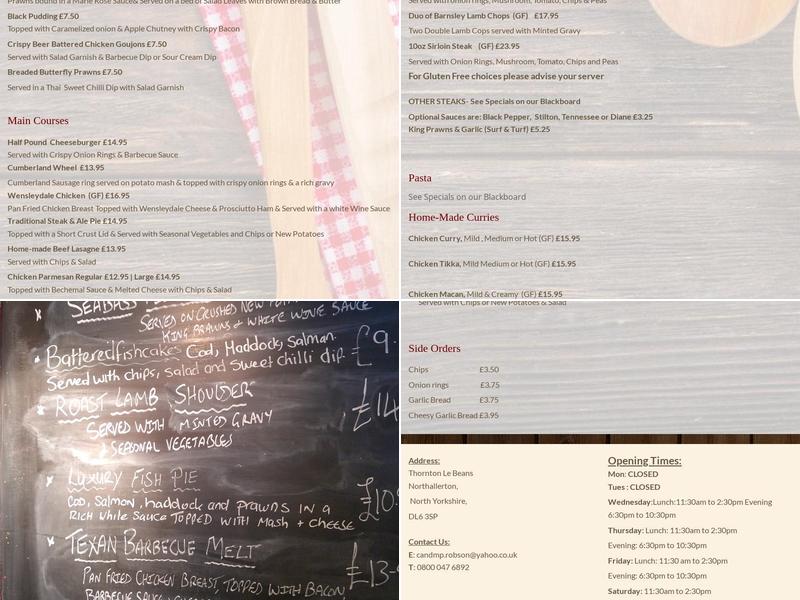 Prawns bound in a Marie Rose Sauce& Served on a bed of Salad Leaves with Brown Bread & Butter
Black Pudding £7.50
Topped with Caramelized onion & Apple Chutney with Crispy Bacon
Crispy Beer Battered Chicken Goujons £7.50
Served with Salad Garnish & Barbecue Dip or Sour Cream Dip
Breaded Butterfly Prawns £7.50
Served in a Thai Sweet Chilli Dip with Salad Garnish
Main Courses
Half Pound Cheeseburger £14.95
Served with Crispy Onion Rings & Barbecue Sauce
Cumberland Wheel £13.95
Cumberland Sausage ring served on potato mash & topped with crispy onion rings & a rich gravy
Wensleydale Chicken (GF) £16.95
Pan Fried Chicken Breast Topped with Wensleydale Cheese & Prosciutto Ham & Served with a white Wine Sauce
Traditional Steak & Ale Pie £14.95
Topped with a Short Crust Lid & Served with Seasonal Vegetables and Chips or New Potatoes
Home-made Beef Lasagne £13.95
Served with Chips & Salad
Chicken Parmesan Regular £12.95 | Large £14.95
Topped with Bechemal Sauce & Melted Cheese with Chips & Salad
Served with onion rings, Mushroom, Tomato, Chips & Peas
Duo of Barnsley Lamb Chops (GF) £17.95
Two Double Lamb Cops served with Minted Gravy
10oz Sirloin Steak (GF) £23.95
Served with Onion Rings, Mushroom, Tomato, Chips and Peas
For Gluten Free choices please advise your server
OTHER STEAKS- See Specials on our Blackboard
Optional Sauces are: Black Pepper, Stilton, Tennessee or Diane £3.25
King Prawns & Garlic (Surf & Turf) £5.25
Pasta
See Specials on our Blackboard
Home-Made Curries
Chicken Curry, Mild , Medium or Hot (GF) £15.95
Chicken Tikka, Mild Medium or Hot (GF) £15.95
Chicken Macan, Mild & Creamy (GF) £15.95
SEABASS
SERVED ON CRUSHED NEW
KING PRAWNS & WHITE WINE SAUCE
Battered fishcakes Cod, Haddock, Salmon. £9.
Served with chips, salad and sweet chilli dip
ROAST LAMB SHOULDER £14
SERVED WITH MINTED GRAVY
& SEASONAL VEGETABLES
LUXURY FISH PIE
COD, SALMON, haddock and prawns in a £10.
RICH WHITE SAUCE TOPPED WITH MASH + CHEESE
TEXAN BARBECUE MELT
PAN FRIED CHICKEN BREAST, TOPPED WITH BACON, £13-
BARBECUE SAUCE
Served with Chips or New Potatoes & Salad
Side Orders
Chips £3.50
Onion rings £3.75
Garlic Bread £3.75
Cheesy Garlic Bread £3.95
Address:
Thornton Le Beans
Northallerton,
North Yorkshire,
DL6 3SP
Contact Us:
E: candmp.robson@yahoo.co.uk
T: 0800 047 6892
Opening Times:
Mon: CLOSED
Tues : CLOSED
Wednesday:Lunch:11:30am to 2:30pm Evening
6:30pm to 10:30pm
Thursday: Lunch: 11:30am to 2:30pm
Evening: 6:30pm to 10:30pm
Friday: Lunch: 11:30 am to 2:30pm
Evening: 6:30pm to 10:30pm
Saturday: 11:30am to 2:30pm